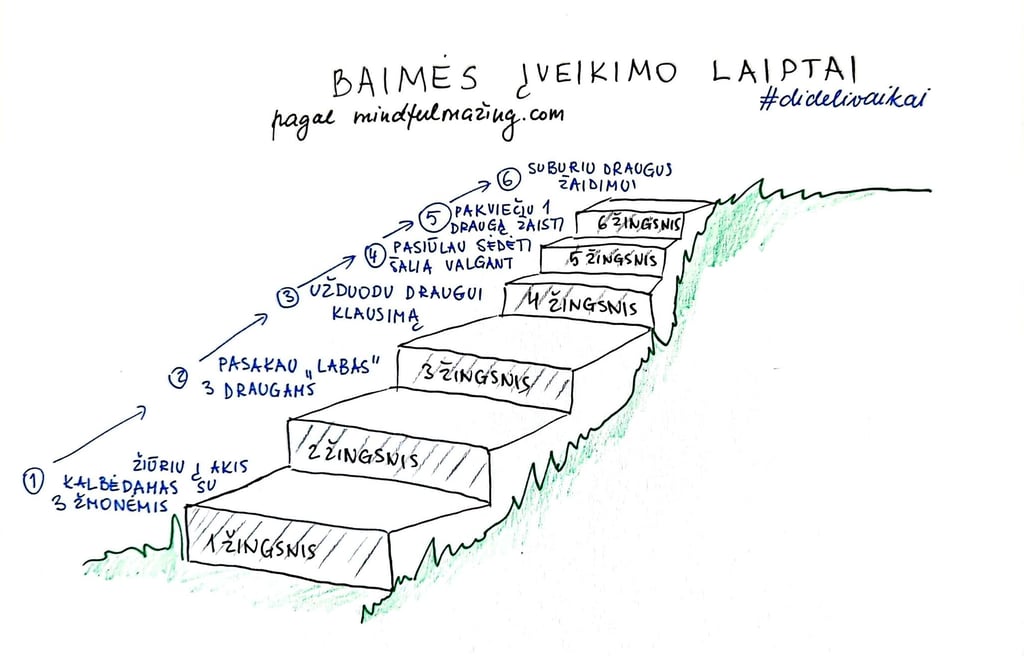 BAIMĖS ĮVEIKIMO LAIPTAI
#didelivaikai
pagal mindfulmazing.com
6 SUBURIU DRAUGUS
ŽAIDIMUI
5 PAKVIEČIU 1
DRAUGĄ ŽAISTI
4 PASIŪLAU SĖDĖTI
ŠALIA VALGANT
3 UŽDUODU DRAUGUI
KLAUSIMĄ
2 PASAKAU „LABAS"
3 DRAUGAMS
1 ŽIŪRIU Į AKIS
KALBĖDAMAS SU
3 ŽMONĖMIS
6 ŽINGSNIS
5 ŽINGSNIS
4 ŽINGSNIS
3 ŽINGSNIS
2 ŽINGSNIS
1 ŽINGSNIS